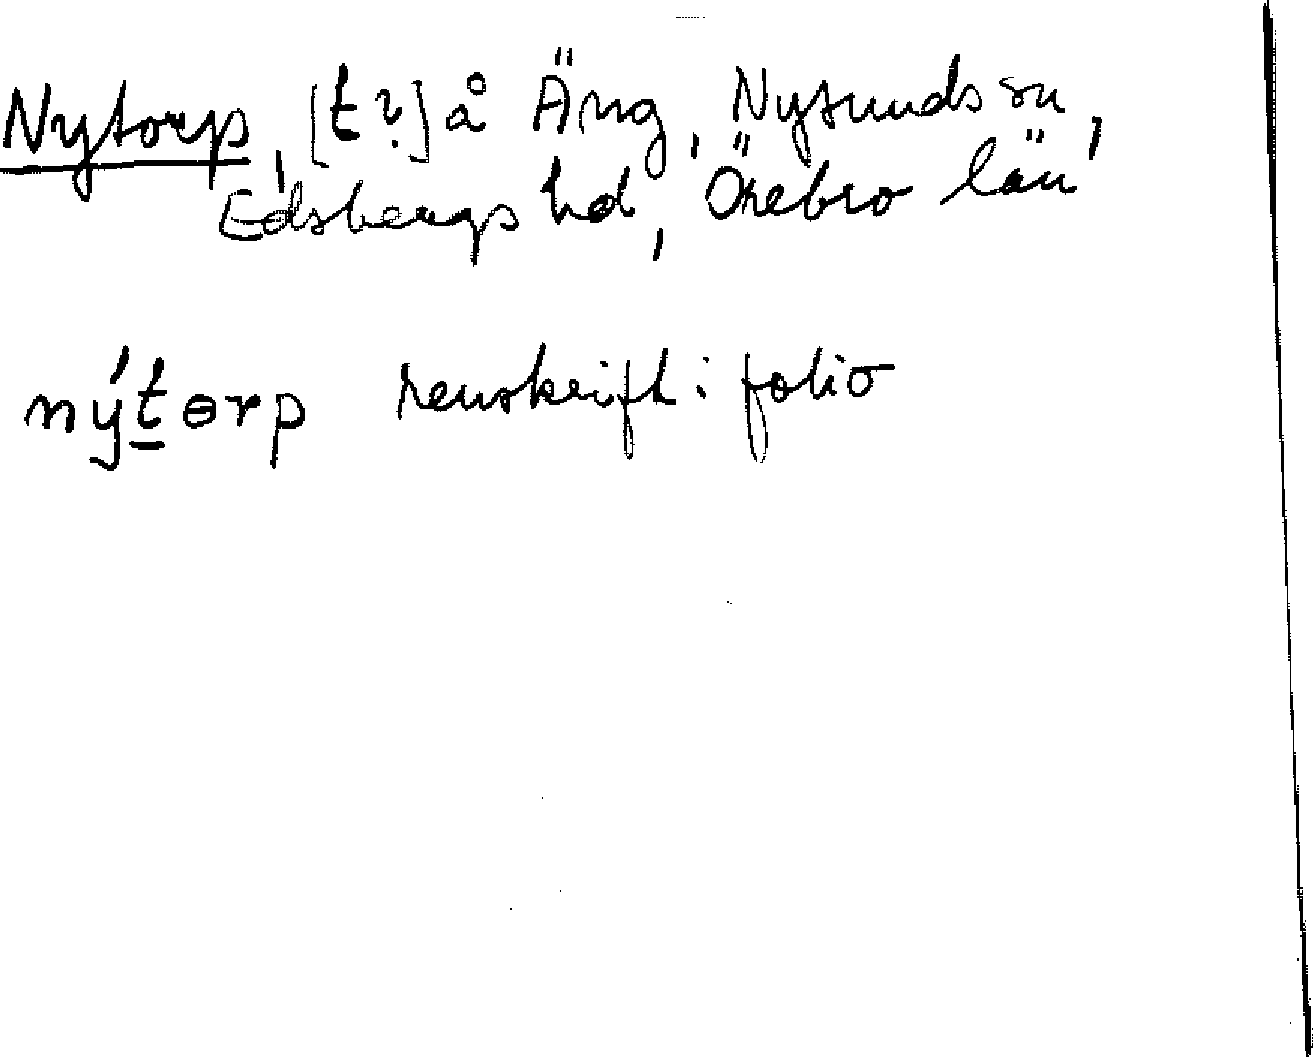 Nytorp, [t?] å Äng, Nysunds sn,
Edsbergs hd, Örebro län
nýt̲ɵrp renskrift i folio